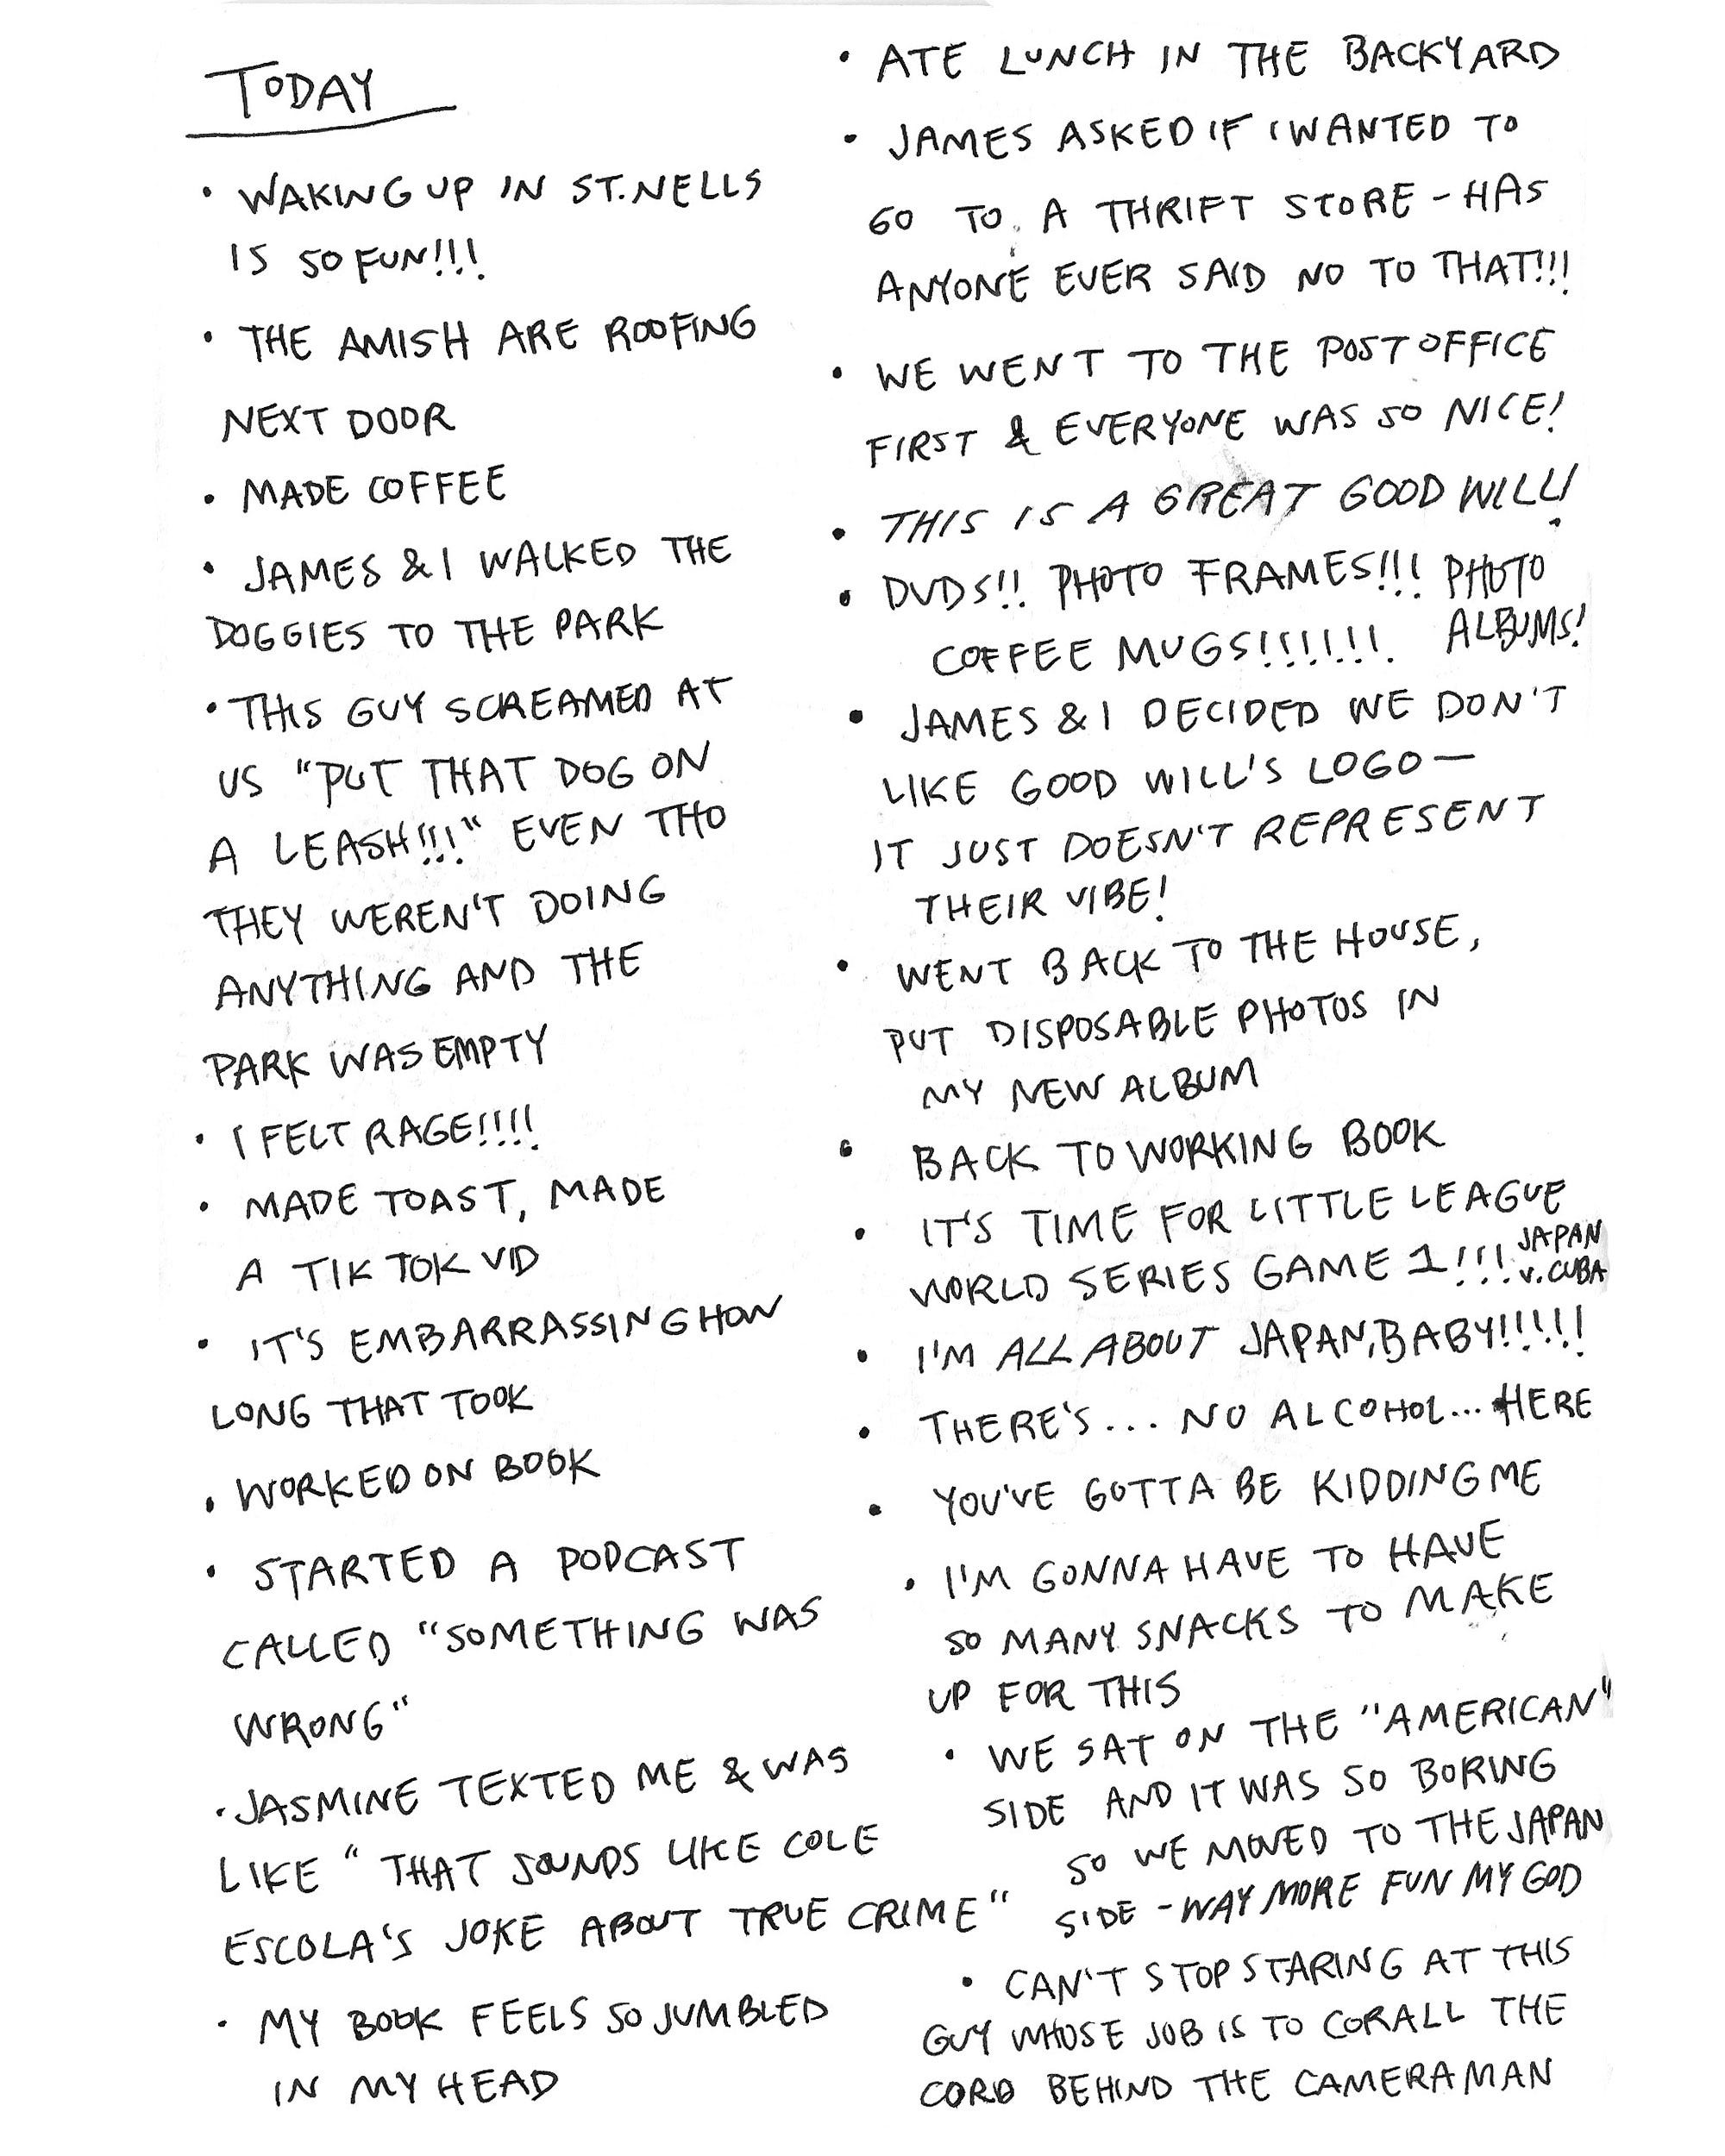 TODAY
• WAKING UP IN ST. NELLS
IS SO FUN!!!
• THE AMISH ARE ROOFING
NEXT DOOR
• MADE COFFEE
• JAMES & I WALKED THE
DOGGIES TO THE PARK
• THIS GUY SCREAMED AT
US "PUT THAT DOG ON
A LEASH!!!" EVEN THO
THEY WEREN'T DOING
ANYTHING AND THE
PARK WAS EMPTY
• I FELT RAGE!!!!
• MADE TOAST, MADE
A TIK TOK VID
• IT'S EMBARRASSING HOW
LONG THAT TOOK
• WORKED ON BOOK
• STARTED A PODCAST
CALLED "SOMETHING WAS
WRONG"
• JASMINE TEXTED ME & WAS
LIKE "THAT SOUNDS LIKE COLE
ESCOLA'S JOKE ABOUT TRUE CRIME"
• MY BOOK FEELS SO JUMBLED
IN MY HEAD
• ATE LUNCH IN THE BACKYARD
• JAMES ASKED IF I WANTED TO
GO TO A THRIFT STORE - HAS
ANYONE EVER SAID NO TO THAT!!!
• WE WENT TO THE POST OFFICE
FIRST & EVERYONE WAS SO NICE!
• THIS IS A GREAT GOOD WILL!
• DVDS!! PHOTO FRAMES!!! PHOTO
ALBUMS!
COFFEE MUGS!!!!!!!
• JAMES & I DECIDED WE DON'T
LIKE GOOD WILL'S LOGO —
IT JUST DOESN'T REPRESENT
THEIR VIBE!
• WENT BACK TO THE HOUSE,
PUT DISPOSABLE PHOTOS IN
MY NEW ALBUM
• BACK TO WORKING BOOK
• IT'S TIME FOR LITTLE LEAGUE
WORLD SERIES GAME 1!!! JAPAN
V. CUBA
• I'M ALL ABOUT JAPAN, BABY!!!!!
• THERE'S... NO ALCOHOL... HERE
• YOU'VE GOTTA BE KIDDING ME
• I'M GONNA HAVE TO HAVE
SO MANY SNACKS TO MAKE
UP FOR THIS
• WE SAT ON THE "AMERICAN"
SIDE AND IT WAS SO BORING
SO WE MOVED TO THE JAPAN
SIDE - WAY MORE FUN MY GOD
• CAN'T STOP STARING AT THIS
GUY WHOSE JOB IS TO CORALL THE
CORD BEHIND THE CAMERAMAN